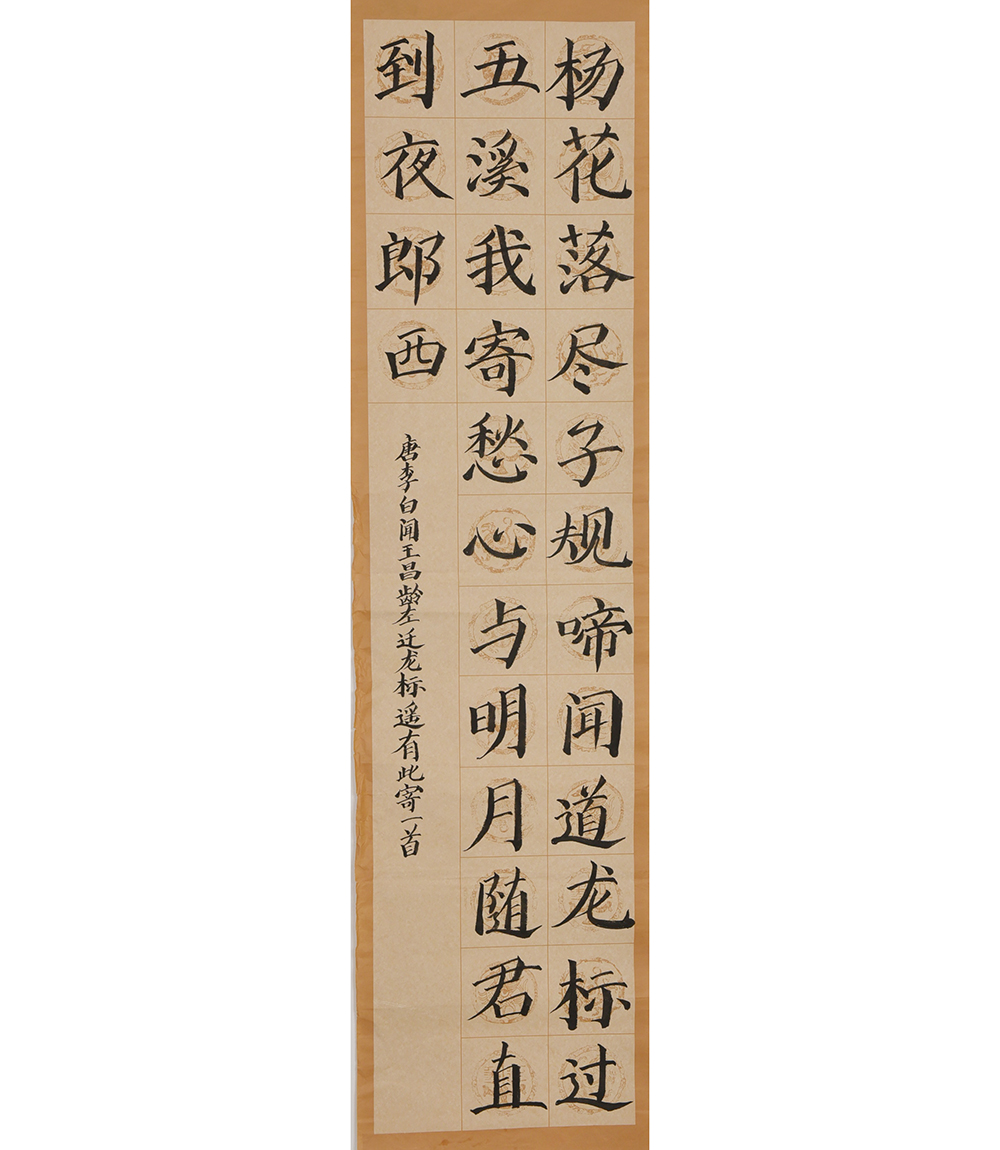 杨花落尽子规啼闻道龙标过
五溪我寄愁心与明月随君直
到夜郎西
唐李白闻王昌龄左迁龙标遥有此寄一首